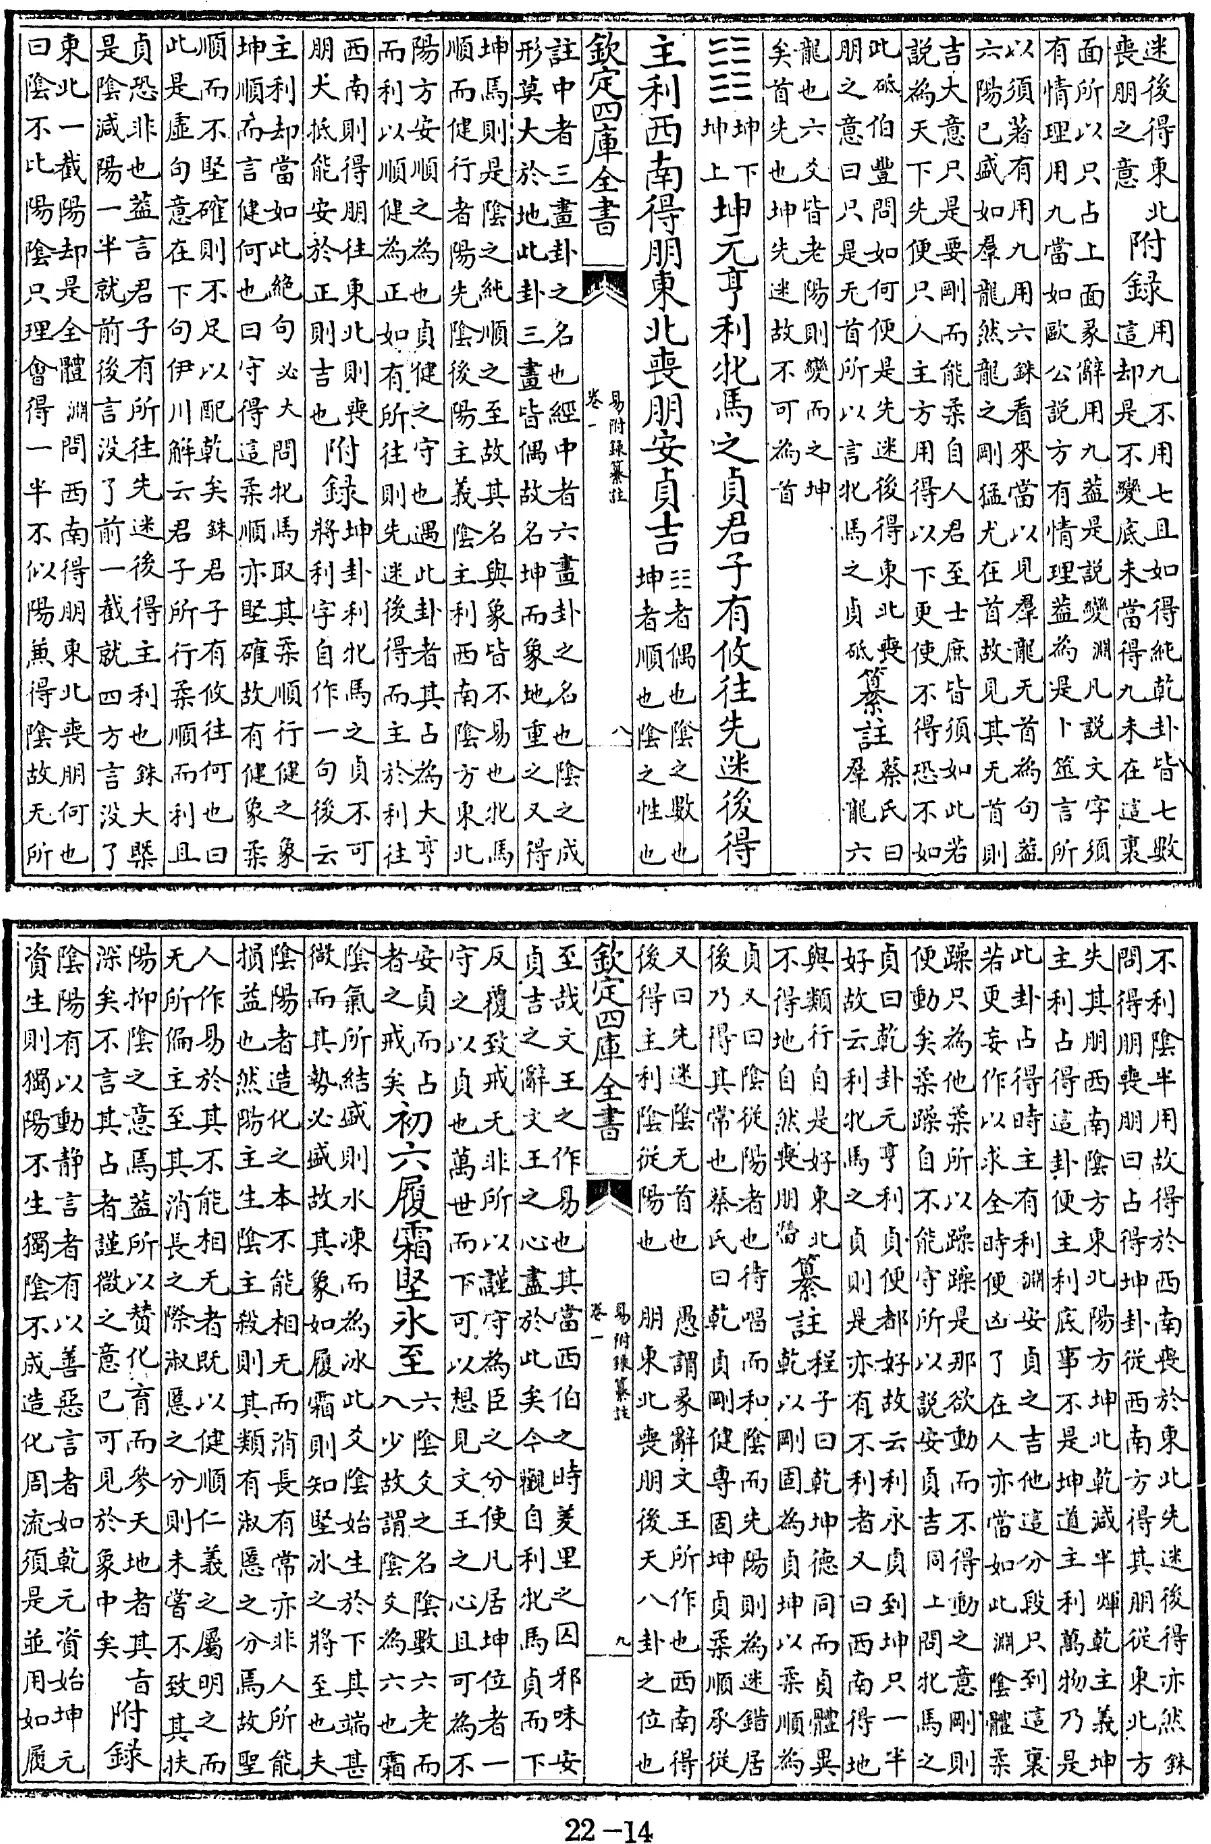 迷後得東北
喪朋之意
附錄
用九不用七且如得純乾卦皆七數
這却是不變底未當得九未在這裏
面所以只占上面彖辭用九蓋是說變淵凡說文字須
有情理用九當如歐公說方有情理蓋為是卜筮言所
以須著有用九用六銖看來當以見羣龍无首為句蓋
六陽已盛如羣龍然龍之剛猛尤在首故見其无首則
吉大意只是要剛而能柔自人君至士庶皆須如此若
說為天下先便只人主方用得以下更使不得恐不如
此砥伯豐問如何便是先迷後得東北喪
朋之意曰只是无首所以言牝馬之貞砥
纂註
蔡氏曰
羣龍六
龍也六爻皆老陽則變而之坤
矣首先也坤先迷故不可為首
䷁
坤下
坤上
坤元亨利牝馬之貞君子有攸往先迷後得
主利西南得朋東北喪朋安貞吉
☷者偶也陰之數也
坤者順也陰之性也
欽定四庫全書
易附録纂註
卷一
八
註中者三畫卦之名也經中者六畫卦之名也陰之成
形莫大於地此卦三畫皆偶故名坤而象地重之又得
坤焉則是陰之純順之至故其名與象皆不易也牝馬
順而健行者陽先陰後陽主義陰主利西南陰方東北
陽方安順之為也貞健之守也遇此卦者其占為大亨
而利以順健為正如有所往則先迷後得而主於利往
西南則得朋往東北則喪
朋大抵能安於正則吉也
附錄
坤卦利牝馬之貞不可
將利字自作一句後云
主利却當如此絕句必大問牝馬取其柔順行健之象
坤順而言健何也曰守得這柔順亦堅確故有健象柔
順而不堅確則不足以配乾矣銖君子有攸往何也曰
此是虛句意在下句伊川解云君子所行柔順而利且
貞恐非也蓋言君子有所往先迷後得主利也銖大槩
是陰減陽一半就前後言沒了前一截就四方言沒了
東北一截陽却是全體淵問西南得朋東北喪朋何也
曰陰不比陽陰只理會得一半不似陽兼得陰故无所
不利陰半用故得於西南喪於東北先迷後得亦然銖
問得朋喪朋曰占得坤卦從西南方得其朋從東北方
失其朋西南陰方東北陽方坤北乾減半煇乾主義坤
主利占得這卦便主利底事不是坤道主利萬物乃是
此卦占得時主有利淵安貞之吉他這分段只到這裏
若更妄作以求全時便凶了在人亦當如此淵陰體柔
躁只為他柔所以躁躁是那欲動而不得動之意剛則
便動矣柔躁自不能守所以說安貞吉同上問牝馬之
貞曰乾卦元亨利貞便都好故云利永貞到坤只一半
好故云利牝馬之貞則是亦有不利者又曰西南得地
與類行自是好東北
不得地自然喪朋㽦
纂註
程子曰乾坤德同而貞體異
乾以剛固為貞坤以柔順為
貞又曰陰從陽者也待唱而和陰而先陽則為迷錯居
後乃得其常也蔡氏曰乾貞剛健專固坤貞柔順承從
又曰先迷陰无首也
後得主利陰從陽也
愚謂彖辭文王所作也西南得
朋東北喪朋後天八卦之位也
欽定四庫全書
易附録纂註
卷一
九
至哉文王之作易也其當西伯之時羑里之囚邪味安
貞吉之辭文王之心盡於此矣今觀自利牝馬貞而下
反覆致戒无非所以謹守為臣之分使凡居坤位者一
守之以貞也萬世而下可以想見文王之心且可為不
安貞而占
者之戒矣
初六履霜堅氷至
六陰爻之名陰數六老而
八少故謂陰爻為六也霜
陰氣所結盛則水凍而為冰此爻陰始生於下其端甚
微而其勢必盛故其象如履霜則知堅冰之將至也夫
陰陽者造化之本不能相无而消長有常亦非人所能
損益也然陽主生陰主殺則其類有淑慝之分焉故聖
人作易於其不能相无者既以健順仁義之屬明之而
无所偏主至其消長之際淑慝之分則未嘗不致其扶
陽抑陰之意焉蓋所以贊化育而參天地者其旨
深矣不言其占者謹微之意已可見於象中矣
附錄
陰陽有以動靜言者有以善惡言者如乾元資始坤元
資生則獨陽不生獨陰不成造化周流須是並用如履
22-14